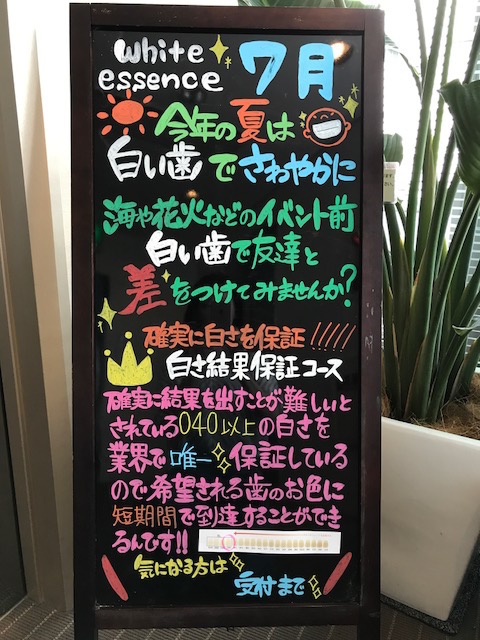 white essence 7月
今年の夏は
白い歯でさわやかに
海や花火などのイベント前
白い歯で友達と
差をつけてみませんか?
確実に白さを保証!!!!!
白さ結果保証コース
確実に結果を出すことが難しいと
されている040以上の白さを
業界で唯一保証している
ので希望される歯のお色に
短期間で到達することができ
るんです!!
気になる方は
受付まで